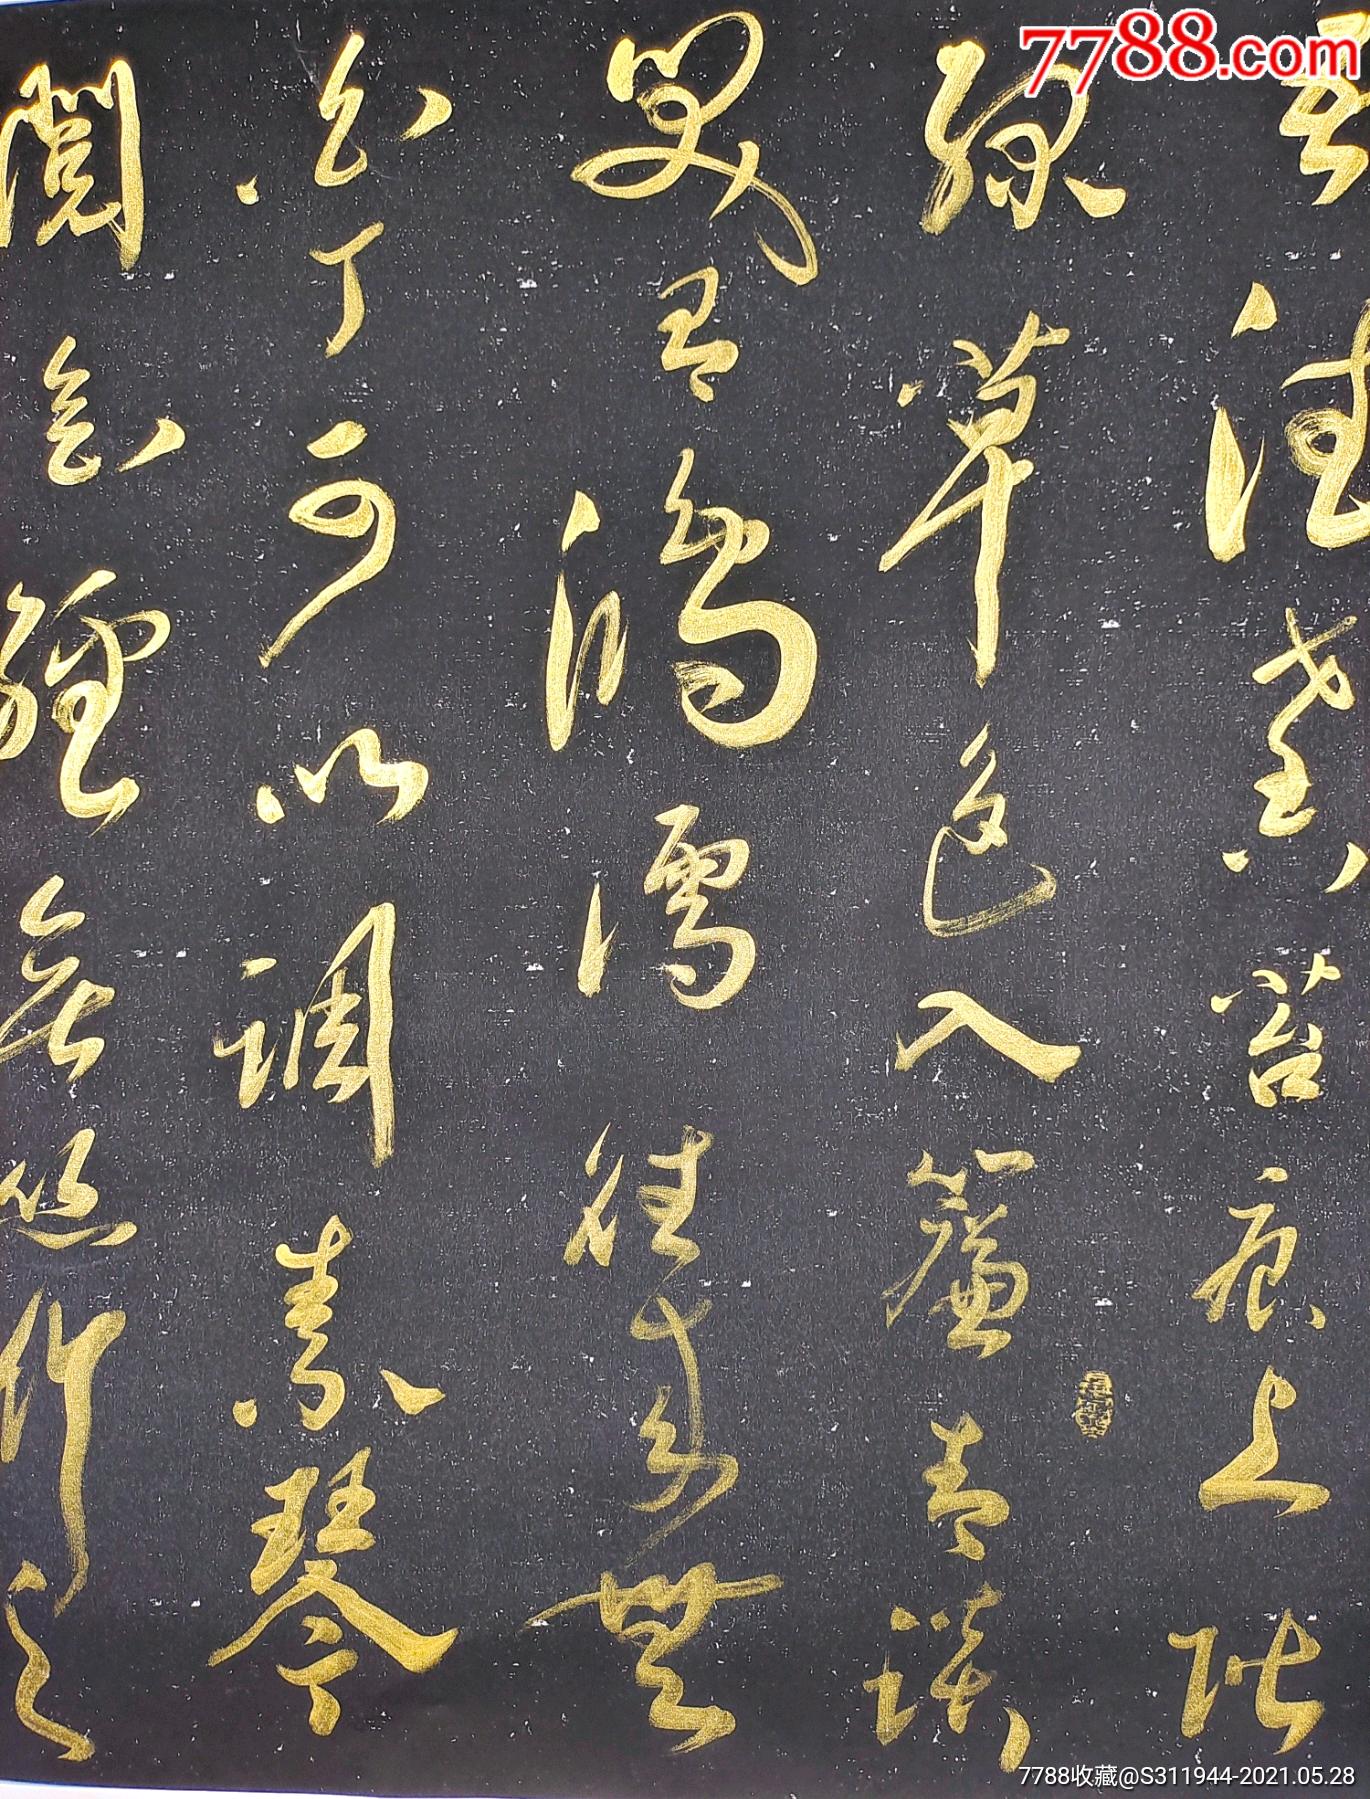 7788.com
吾德馨苔痕上階
綠草色入簾青談
笑有鴻儒往來無
白丁可以調素琴
閱金經無絲竹之
7788收藏@S311944-2021.05.28